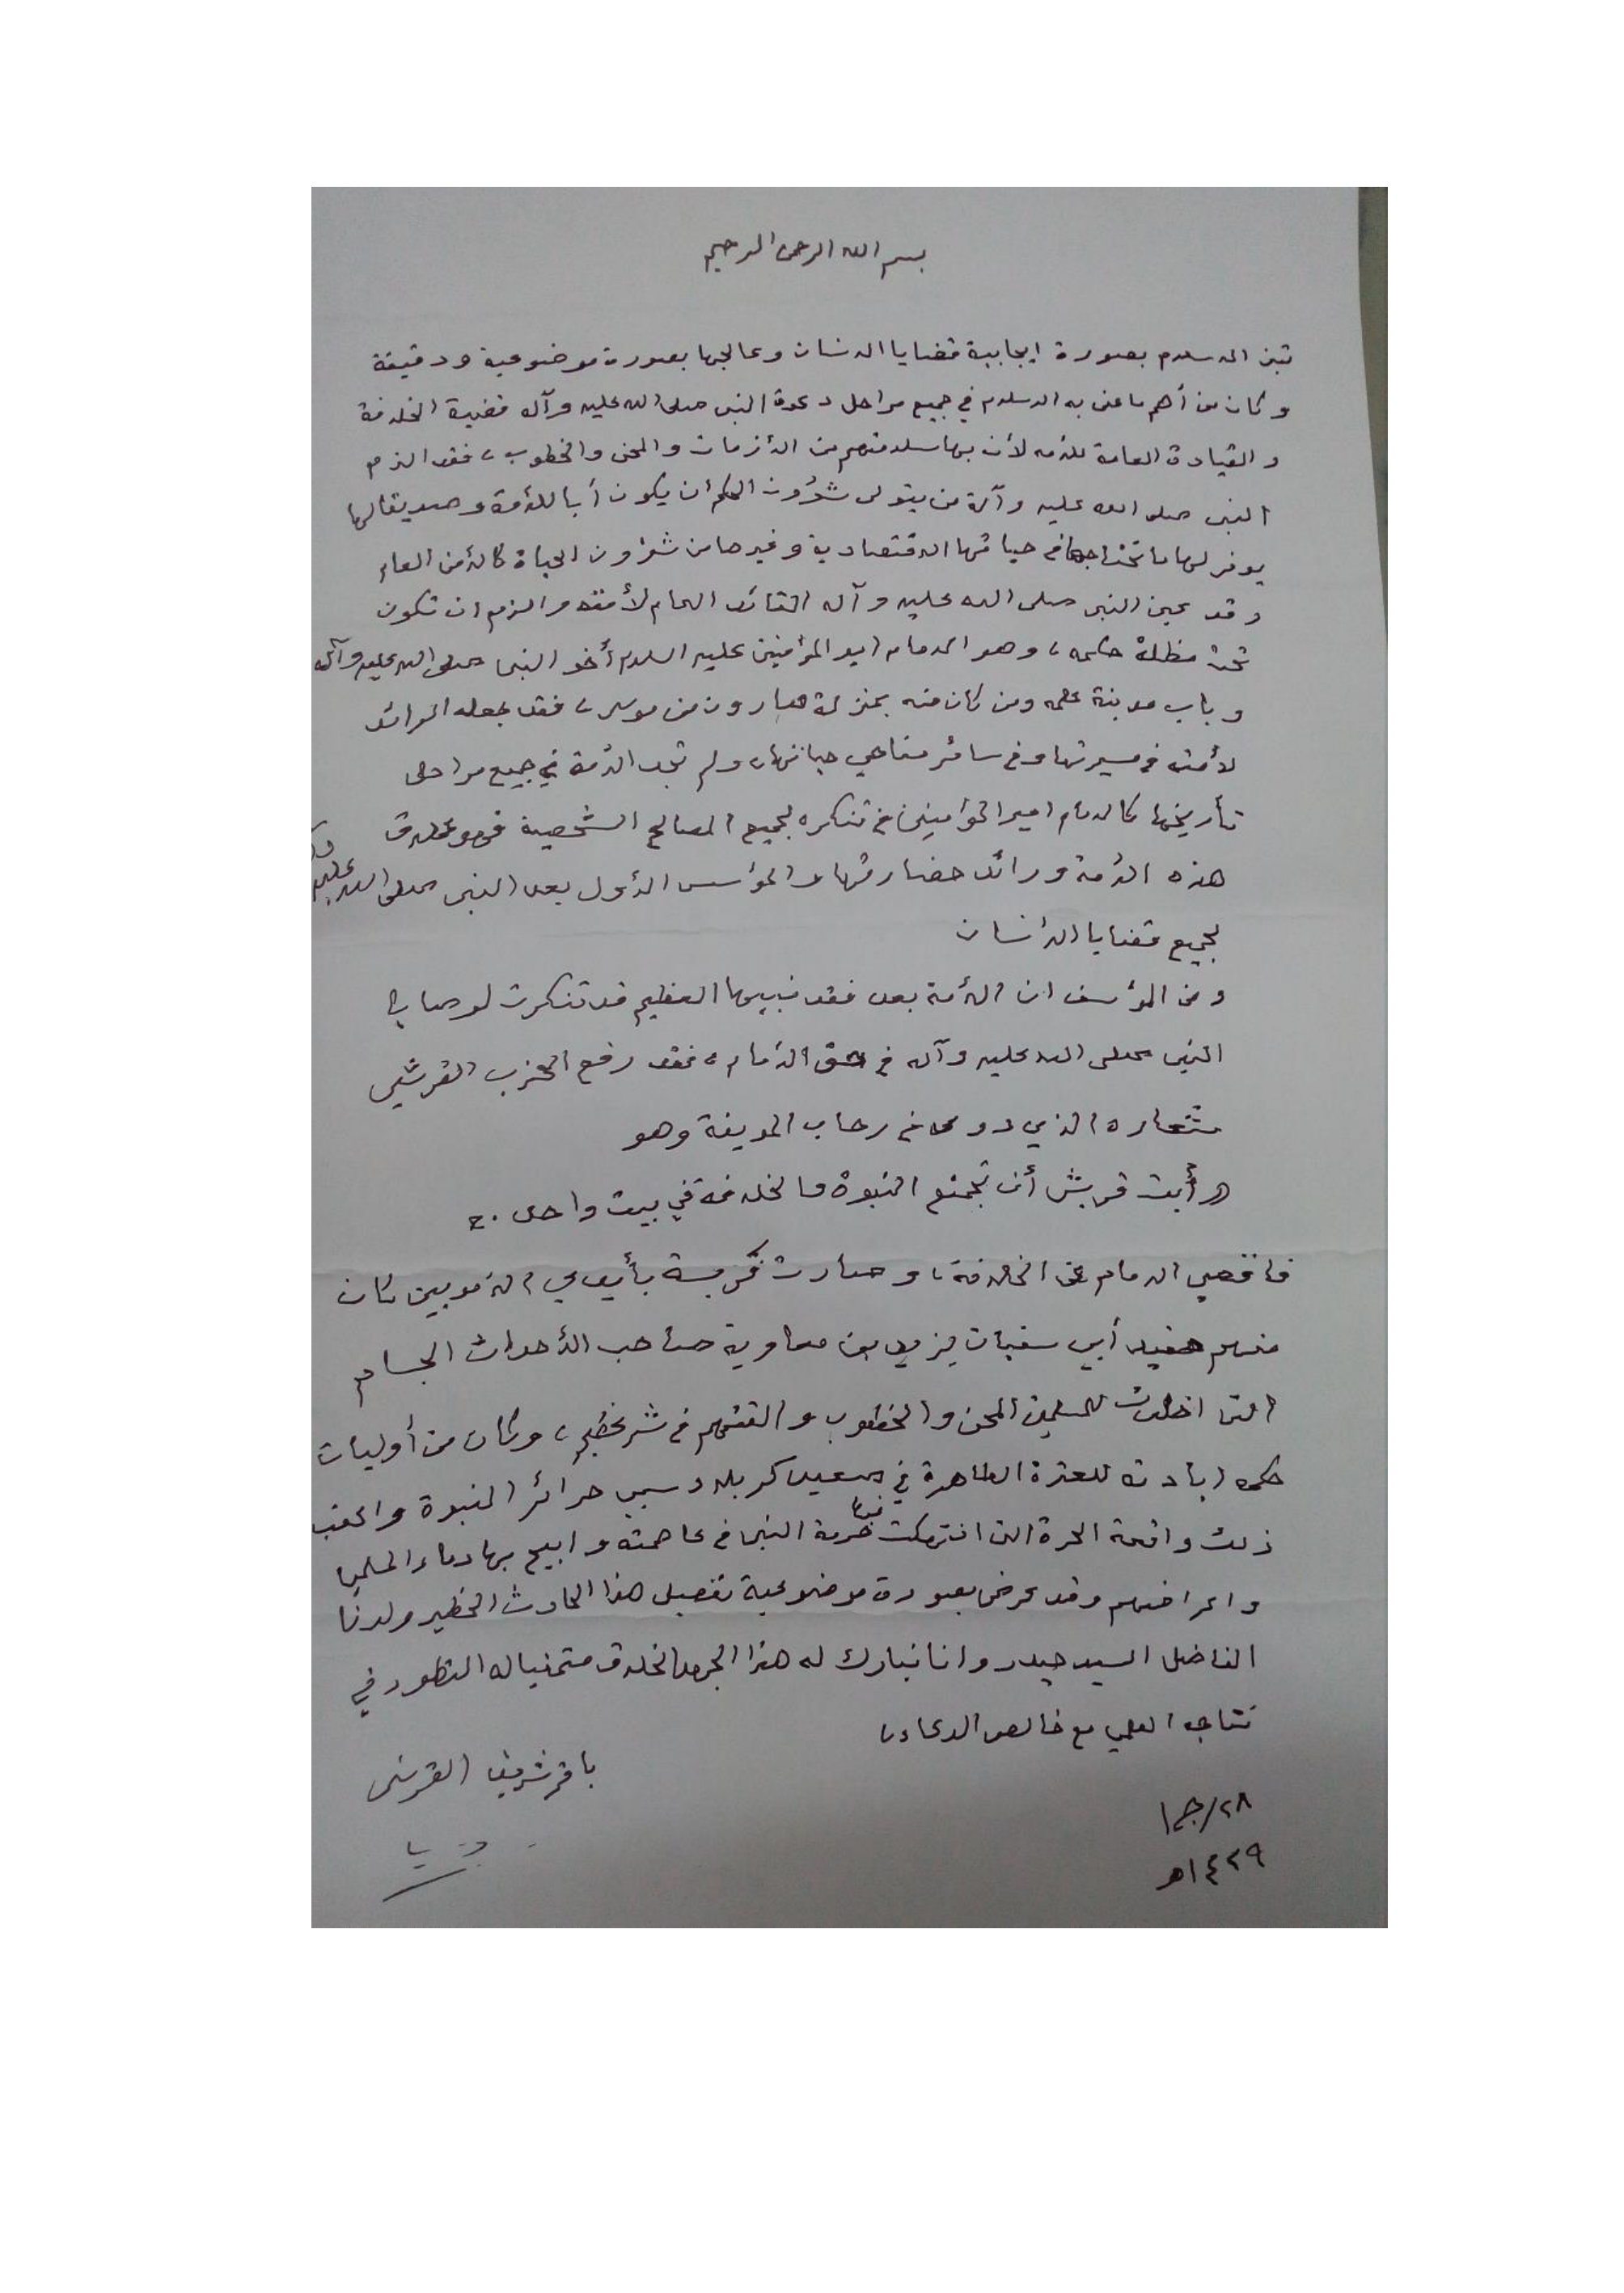 بسم الله الرحمن الرحيم
تبنى الاسلام بصورة ايجابية قضايا الانسان وعالجها بصورة موضوعية ودقيقة
وكان من أهم ما عنى به الاسلام في جميع مراحل دعوة النبي صلى الله عليه وآله قضية الخلافة
والقيادة العامة للأمه لأن بها سلامتهم من الأزمات والمحن والخطوب، فقد الزم
النبي صلى الله عليه وآله من يتولى شؤون الحكم ان يكون أبا للأمة وصديقا لها
يوفر لها ما تحتاجه في حياتها الاقتصادية وغيرها من شؤون الحياة كالأمن العام
وقد عين النبي صلى الله عليه وآله القائد العام لأمته والزم ان تكون
تحت مظلة حكمه، وهو الامام امير المؤمنين عليه السلام أخو النبي صلى الله عليه وآله
وباب مدينة علمه ومن كان منه بمنزلة هارون من موسى، فقد جعله الرائد
لأمته في مسيرتها وفي سائر مناحي حياتها، ولم تجد الأمة في جميع مراحل
تأريخها كالامام امير المؤمنين في تنكره لجميع المصالح الشخصية فهو عملاق
هذه الأمة ورائد حضارتها والمؤسس الأول بعد النبي صلى الله عليه
لجميع قضايا الانسان
ومن المؤسف ان الأمة بعد فقد نبيها العظيم قد تنكرت لوصايا
النبي صلى الله عليه وآله في حق الامام، فقد رفع الحزب القرشي
شعاره الذي دوى في رحاب المدينة وهو
«أبت قريش أن تجتمع النبوة والخلافة في بيت واحد».
فاقصي الامام عن الخلافة، وصارت بأيدي الأمويين كان
منهم حفيد أبي سفيان يزيد بن معاوية صاحب الأحداث الجسام
التي اخلدت للمسلمين المحن والخطوب والقتهم في شر عظيم، وكان من أوليات
حكمه ابادته للعترة الطاهرة في صعيد كربلاء وسبي حرائر النبوة واعقب
ذلك واقعة الحرة التي انتهكت فيها حرمة النبي في عاصمته وابيح بها دماء المسلمين
واعراضهم وقد عرض بصورة موضوعية تفصيل هذا الحادث الخطير ولدنا
الفاضل السيد حيدر وانا نبارك له هذا الجهد الخلاق متمنيا له التطور في
نتاجه العلمي مع خالص الدعاء،
باقر شريف القرشي
٢٨/ج١
١٤٢٩هـ